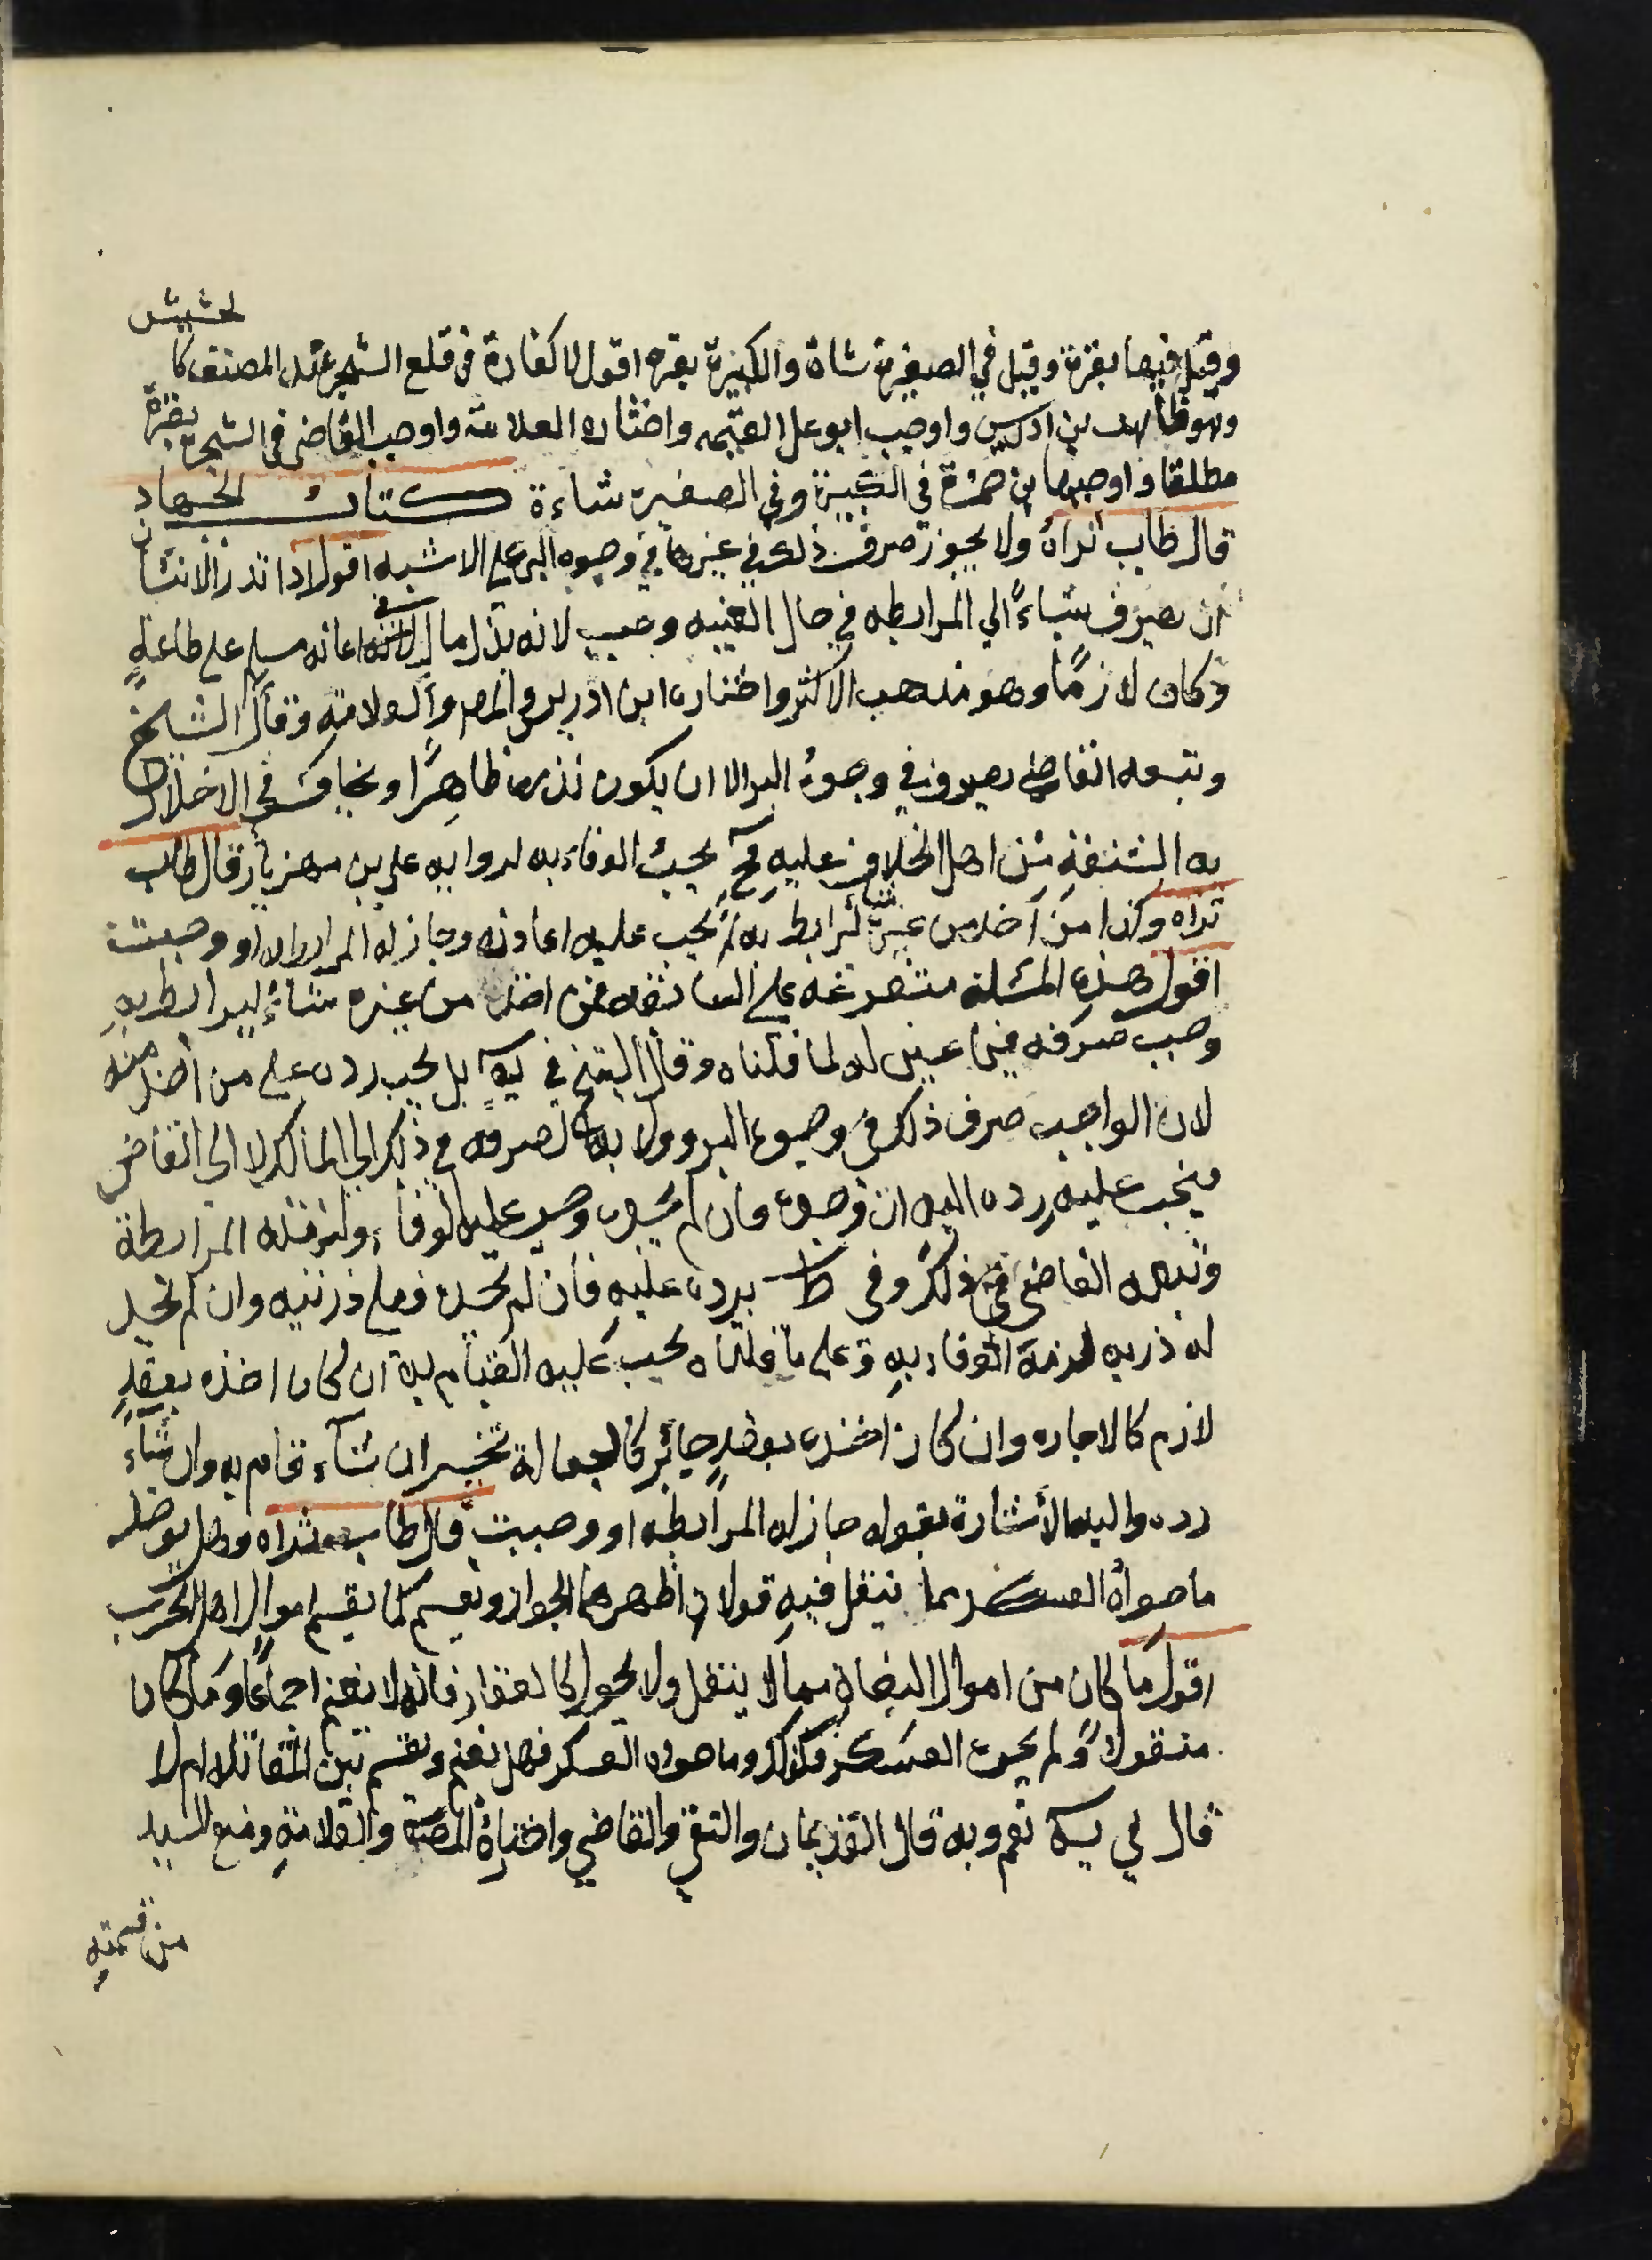 لحشيش
وقيل فيها بقرة وقيل في الصغيرة شاة والكبيرة بقرة اقول لا كفارة في قلع الشجر عند المصنف كا
وهو ظاهر بن ادريس واوجب ابو علي القيمه واختاره العلامة واوجب القاضي في الشجرة بقرة
مطلقا واوجبها بن حمزة في الكبيرة وفي الصغيرة شاءة كتاب الجهاد
قال طاب ثراه ولا يجوز صرف ذلك في غيرها في وجوه البر علي الاشبه اقول اذا نذر الانسان
ان يصرف شياءً الي المرابطه في حال الغيبه وجب لانه بذل مال في اعانه مسلم علي طاعةٍ
وكان لازمًا وهو مذهب الاكثر واختاره ابن ادريس والمصر والعلامةِ وقال الشيخ
وتبعه القاضي يصرف في وجوه البر الا ان يكون نذره ظاهرًا ويخاف في الاخلال
به الشنعةِ من اهل الخلاف عليهِ فح يجب الوفاء به لروايه علي بن مهزيار قال طاب
ثراه وكذا من اخذ من غيره شيئا ليرابط به لم يجب عليه اعادته وجاز له المرابطه او وجبت
اقول هذه المسئلة متفرغه علي السابقه فمن اخذ من غيره شاءً ليرابط بهِ
وجب صرفه فيما عين له لما قلناه وقال الشيخ في يةٍ بل يجب رده علي من اخذ منه
لان الواجب صرف ذلك في وجوه البر وولايه صرفه في ذلك الي المالك لا الي القابض
فيجب عليهِ رده اليه ان وجده فان لم يجده وجب عليه الوفاء ولزمته المرابطة
وتبعه القاضي في ذلك وفي ط يرده عليهِ فان لم يجده فعلي ذريتيه وان لم تجد
له ذريه لزمه الوفاء بهِ وعلي ما قلناه يجب عليه القيام به ان كان اخذه بعقدٍ
لازم كالاجاره وان كان اخذه بعقدٍ جائز كالجعالة تخير ان شآء قام به وان شآء
رده واليه الأشارة بقوله جاز له المرابطه او وجبت قال طاب ثراه وهل يوخذ
ما حواه العسكر مما ينتقل فيهِ قولان اظهرهما الجواز ويقسم كما يقسم اموال اهل الحرب
اقول ما كان من اموال البغاة مما لا ينتقل ولا يحول كالعقار فانه لا يغنم اجماعًا وما كان
منقولاً ولم يحوه العسكر فكذلك وما حواه العسكر فهل يغنم ويقسم بين المقاتله ام لا
قال في يةٍ نعم وبه قال القديمان والتقي والقاضي واختاره المصنف والعلامةِ ومنع السيد
من قسمتهِ